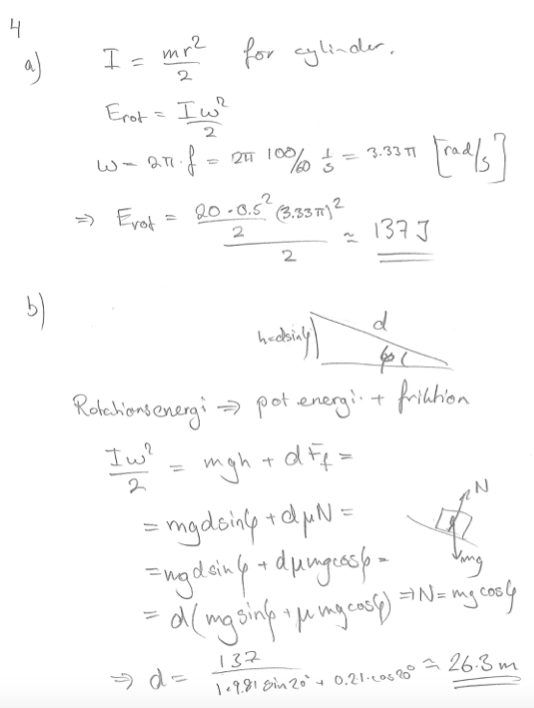 4
a) I = mr²/2 for cylinder.
Erot = Iω²/2
ω = 2π·f = 2π 100/60 1/s = 3.33π [rad/s]
⇒ Erot = (20·0.5²/2 (3.33π)²)/2 ≈ 137 J
b)
h=dsinφ d φ
Rotationsenergi ⇒ pot energi + friktion
Iω²/2 = mgh + dFf =
= mgdsinφ + dμN =
N
= mgdsinφ + dμmgcosφ =
mg
= d(mgsinφ + μmgcosφ) ⇒ N = mgcosφ
⇒ d = 137/(1·9.81 sin20° + 0.21·cos20°) ≈ 26.3 m